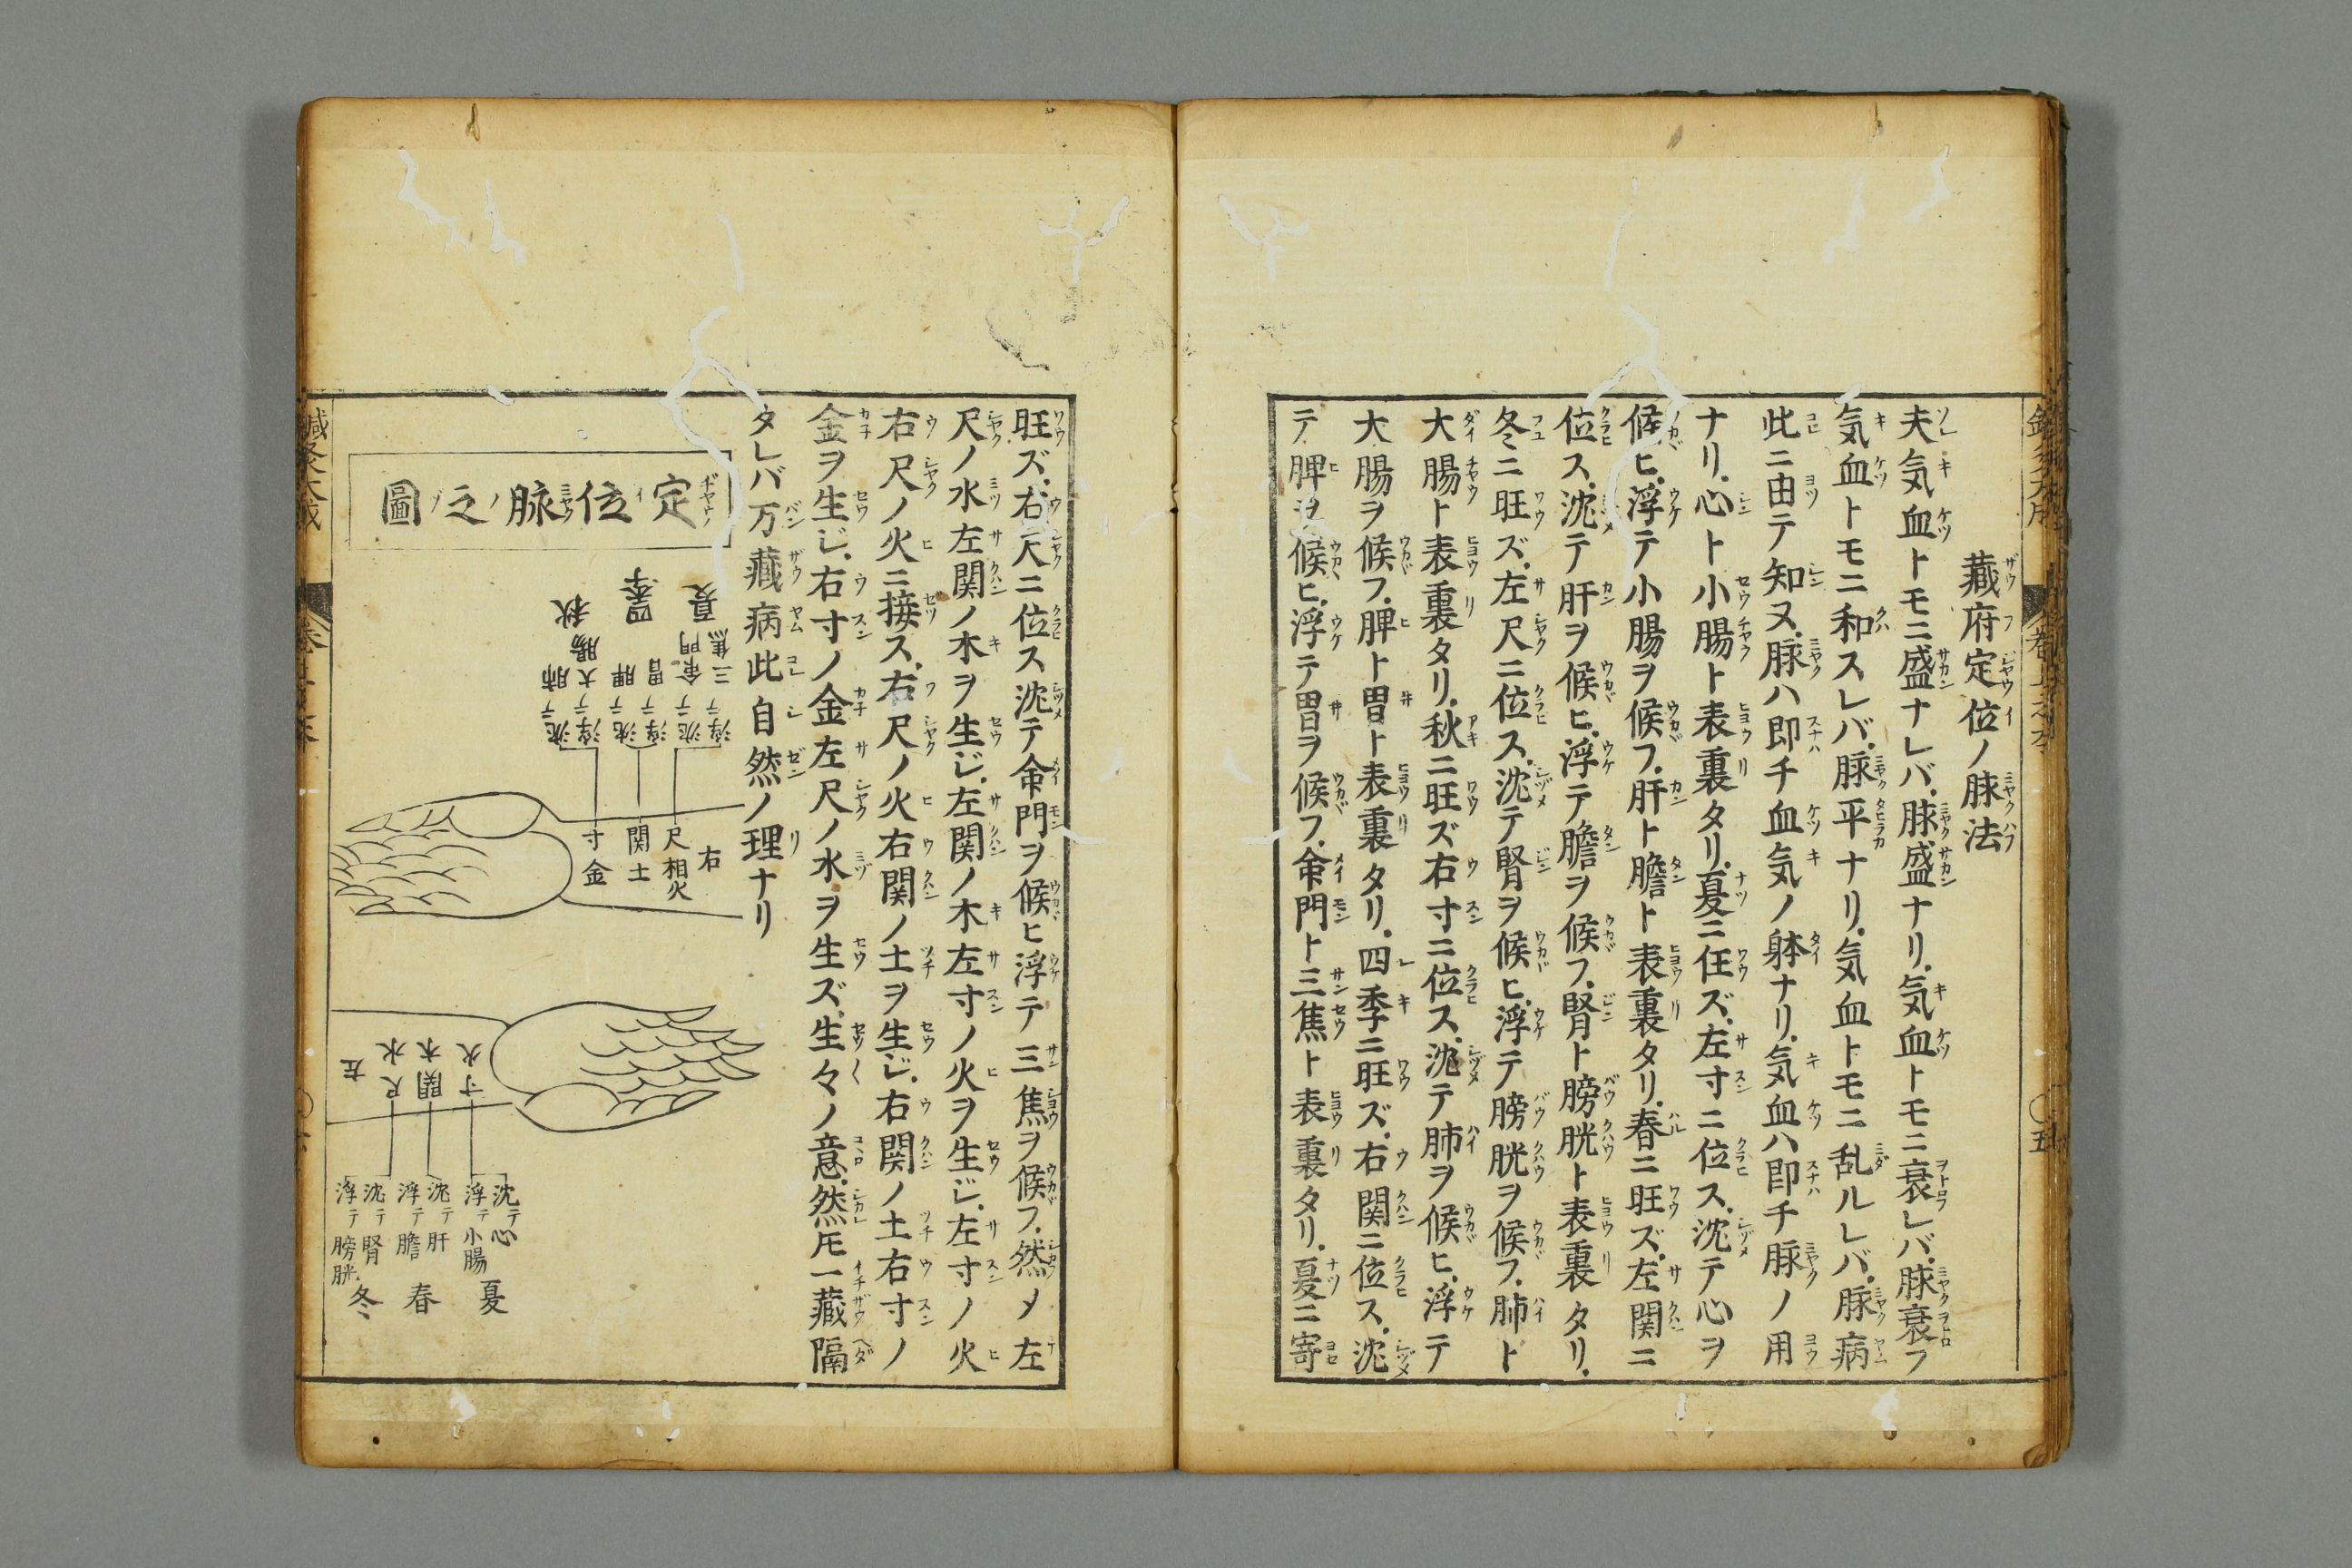 藏府定位ノ脉法
夫気血トモニ盛ナレバ脉盛ナリ気血トモニ衰レバ脉衰フ
気血トモニ和スレバ脉平ナリ気血トモニ乱ルレバ脉病
此ニ由テ知ヌ脉ハ即チ血気ノ躰ナリ気血ハ即チ脉ノ用
ナリ心ト小腸ト表裏タリ夏ニ旺ズ左寸ニ位ス沈テ心ヲ
候ヒ浮テ小腸ヲ候フ肝ト膽ト表裏タリ春ニ旺ズ左関ニ
位ス沈テ肝ヲ候ヒ浮テ膽ヲ候フ腎ト膀胱ト表裏タリ
冬ニ旺ズ左尺ニ位ス沈テ腎ヲ候ヒ浮テ膀胱ヲ候フ肺ト
大腸ト表裏タリ秋ニ旺ズ右寸ニ位ス沈テ肺ヲ候ヒ浮テ
大腸ヲ候フ脾ト胃ト表裏タリ四季ニ旺ズ右関ニ位ス沈
テ脾ヲ候ヒ浮テ胃ヲ候フ命門ト三焦ト表裏タリ夏ニ寄
旺ズ右尺ニ位ス沈テ命門ヲ候ヒ浮テ三焦ヲ候フ然メ左
尺ノ水左関ノ木ヲ生ジ左関ノ木左寸ノ火ヲ生ジ左寸ノ火
右尺ノ火ニ接ス右尺ノ火右関ノ土ヲ生ジ右関ノ土右寸ノ
金ヲ生ジ右寸ノ金左尺ノ水ヲ生ズ生々ノ意然圧一藏隔
タレバ万藏病此自然ノ理ナリ
定位脉之圖
夏
四季
秋
浮テ三焦
沈テ命門
浮テ胃
沈テ脾
浮テ大腸
沈テ肺
右
尺相火
関土
寸金
寸火
関木
尺水
左
沈テ心
浮テ小腸
夏
沈テ肝
浮テ膽
春
沈テ腎
浮テ膀胱
冬